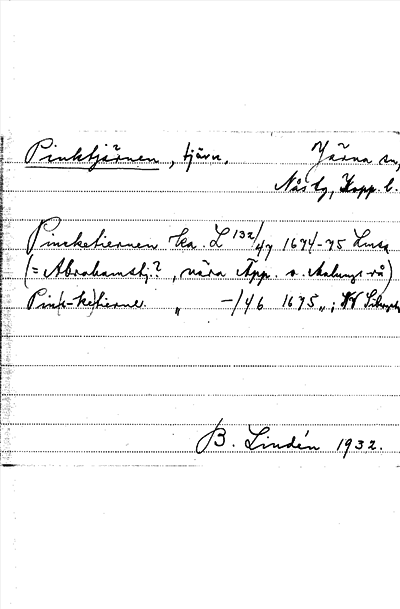 Pinktjärnen, tjärn. Järna sn,
Nås tg, Kopp. l.
Pincketiernen ka. L 132/47 1674-75 Lmsa
(= Abrahamstj.?, nära Äpp. o. Malungs-rå)
Pin(-ke)tierne " -/46 1675 ";
B. Lindén 1932.